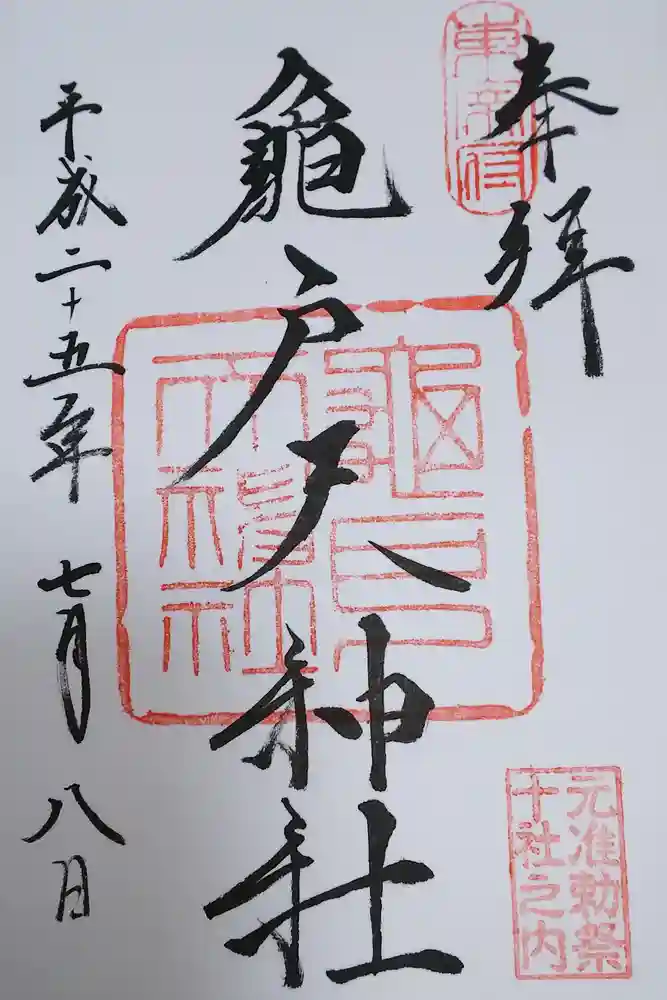 奉拝
東宰府
元准勅祭
十社之内
龜戸天神社
龜戸
天神社
平成二十五年七月八日